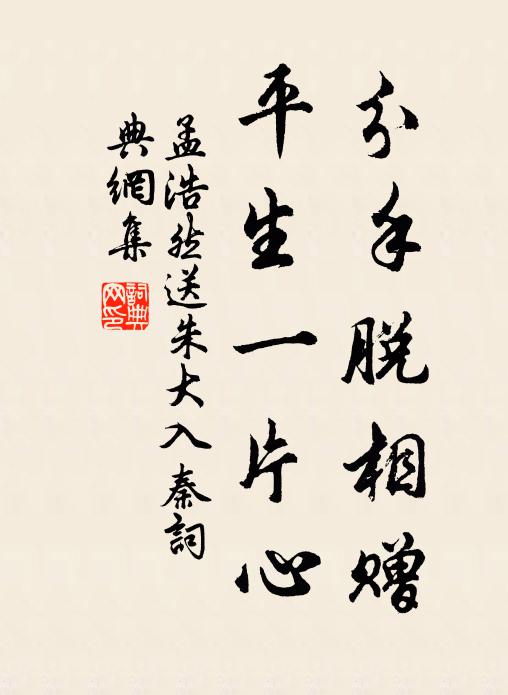 分手脱相赠
平生一片心
孟浩然送朱大入秦詞
典網集
詞典
网印